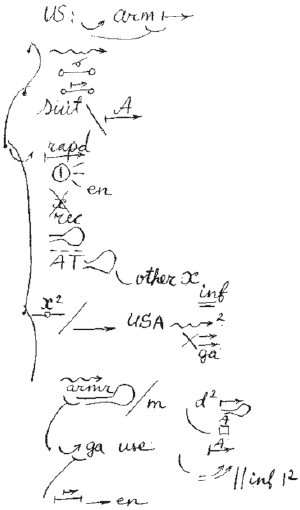 US: arm
Suit A
rapd
1
en
x
rec
AT
other x
inf
x²
USA 2
ga
armr
/m d²
A
ga use A
= // inf 12
en